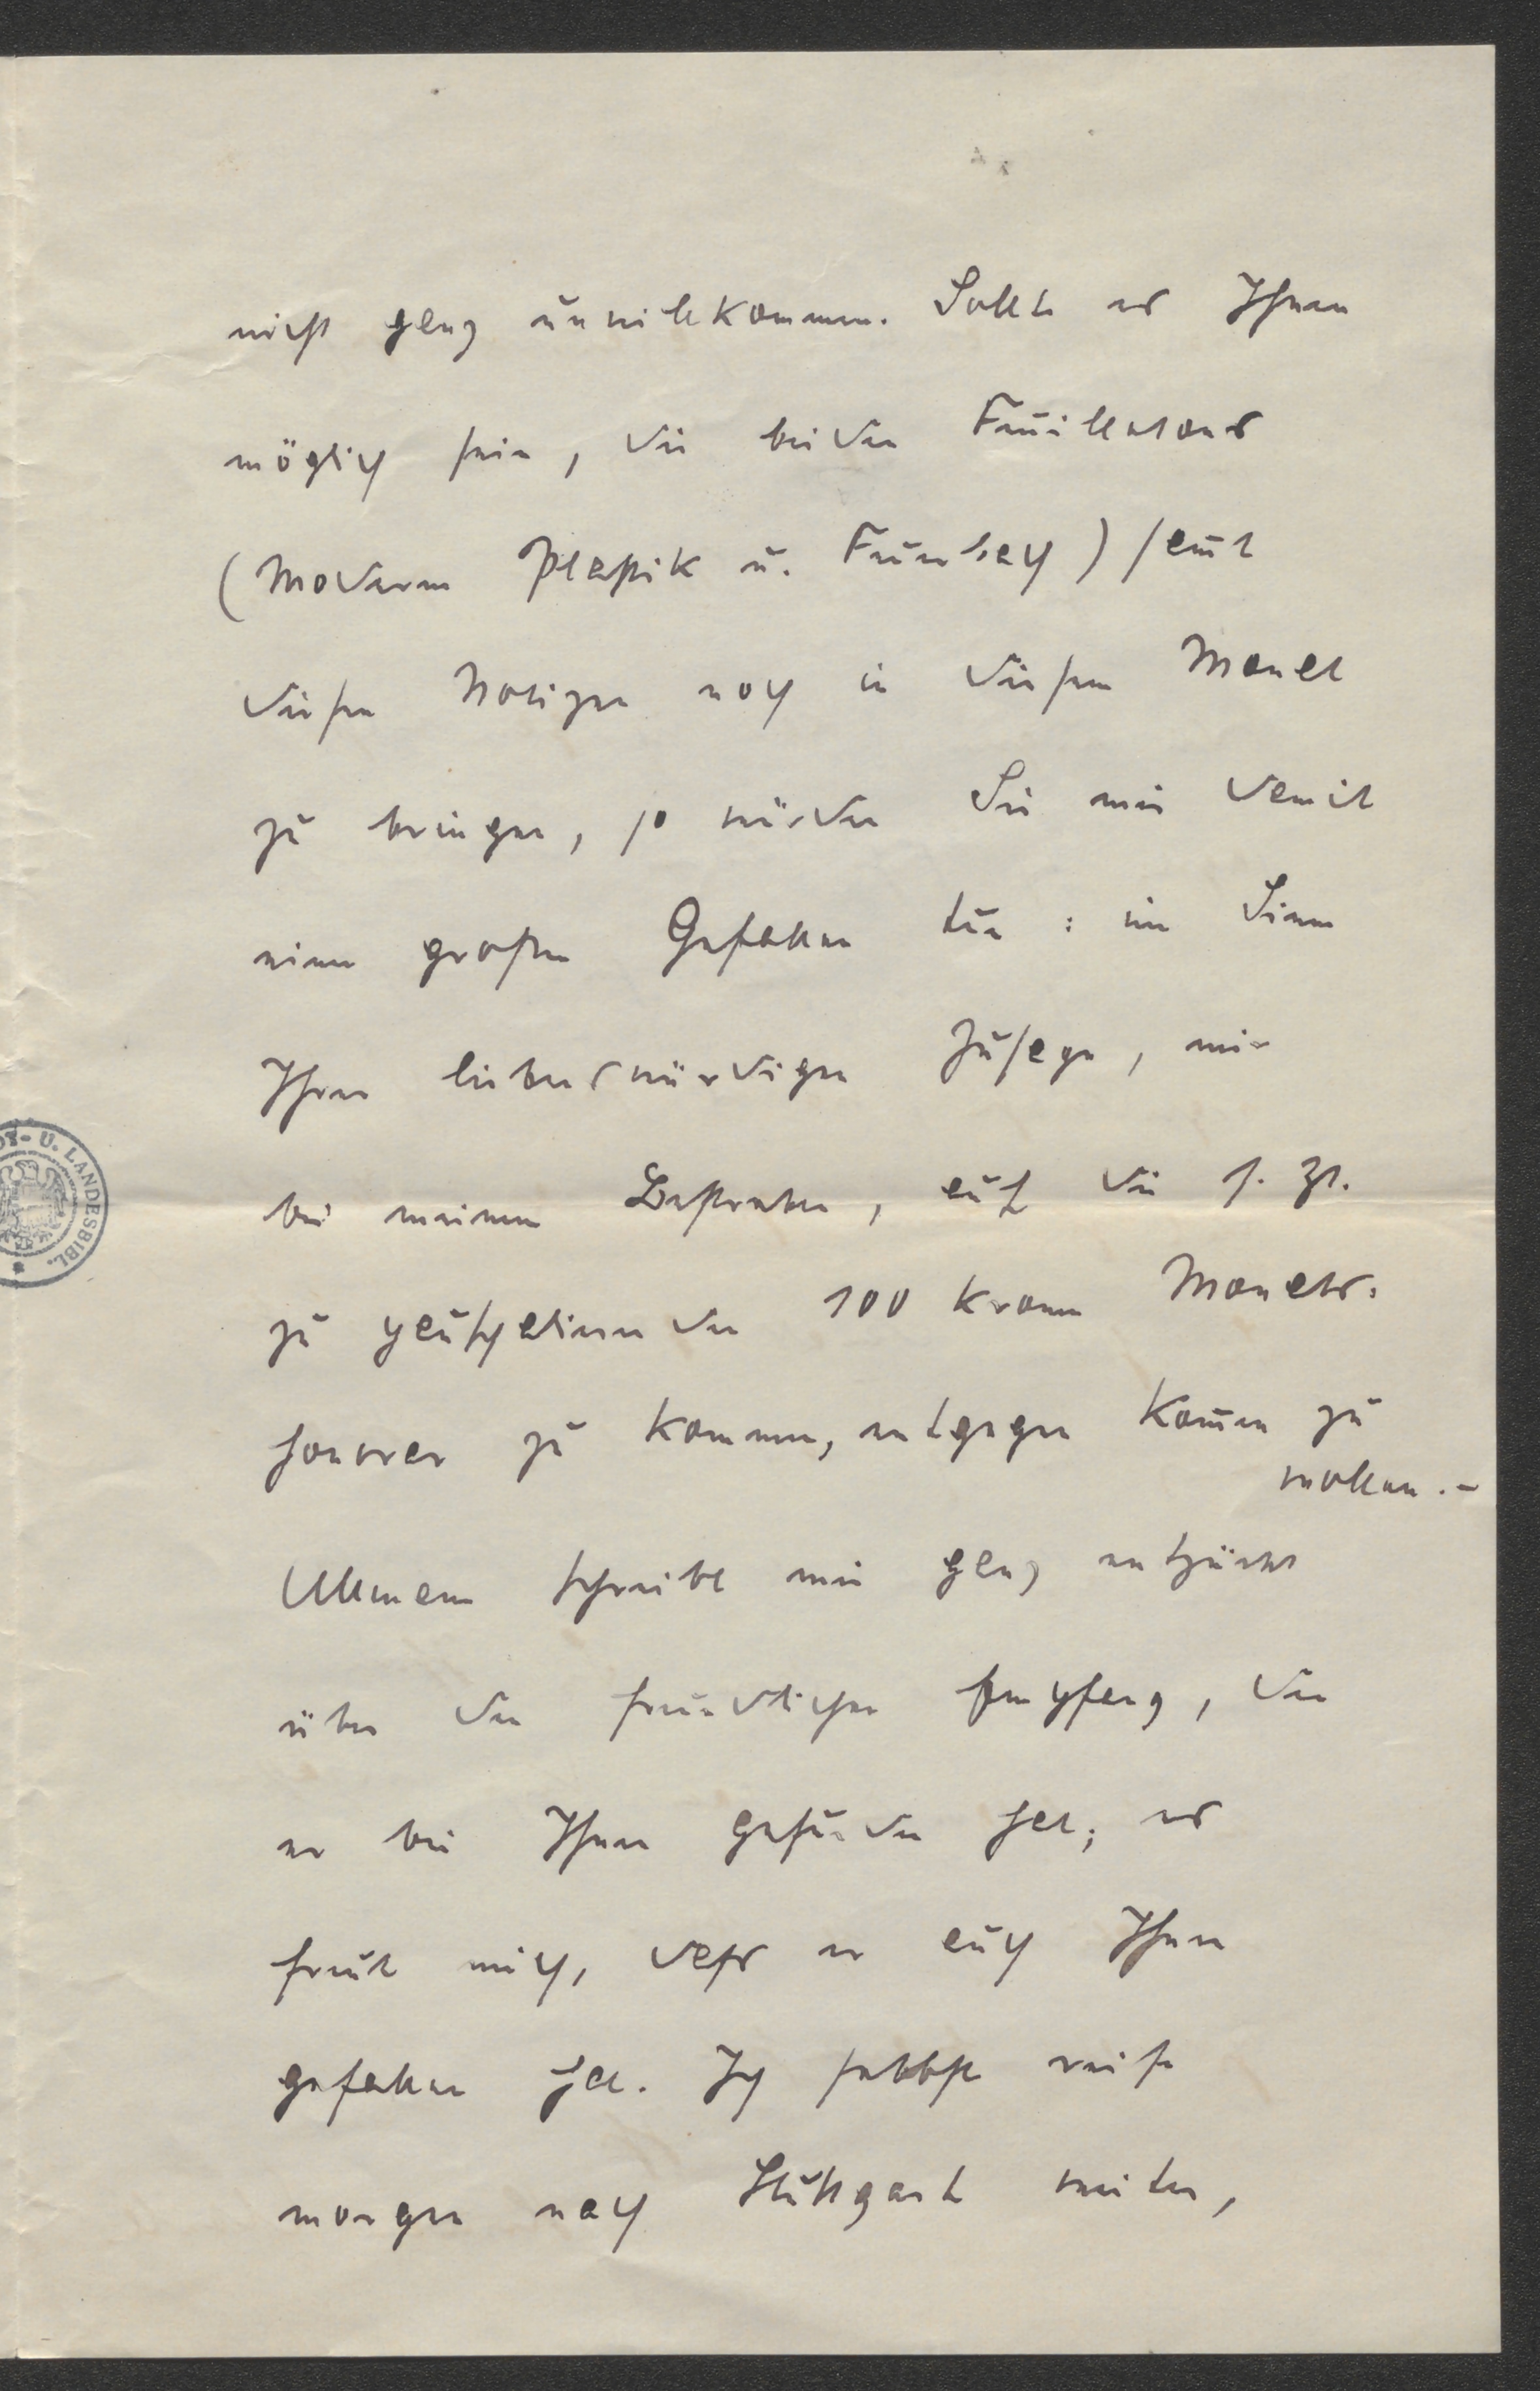 nicht ganz unwillkommen. Sollte es Ihnen
möglich sein, die beiden Feuilletons
(Moderne Plastik u. Feuerbach) samt
diesen Notizen noch in diesem Monat
zu bringen, so würden Sie mir damit
einen großen Gefallen tun: im Sinne
Ihrer liebenswürdigen Zusage, mir
bei meinem Bestreben, auf die s. Zt.
zu garantierenden 100 Kronen Monats-
honorar zu kommen, entgegen kommen zu
wollen. –
Ullmann schreibt mir ganz entzückt
über den freundlichen Empfang, den
er bei Ihnen gefunden hat; es
freut mich, dass er auch Ihnen
gefallen hat. Ich selbst reise
morgen nach Stuttgart weiter,
DT- U. LANDESBIBL.